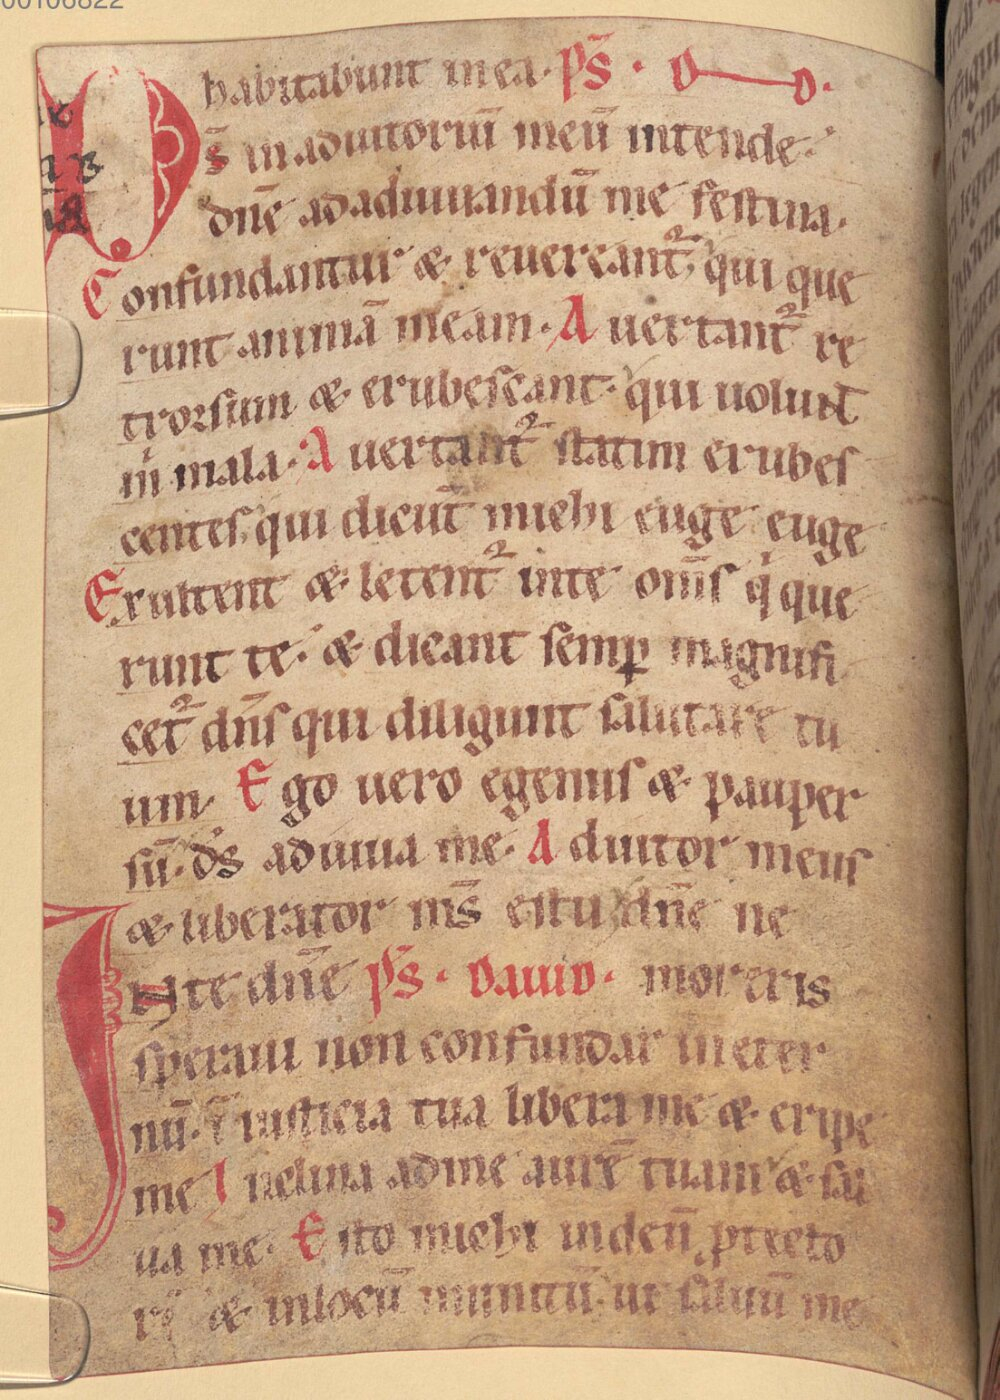 00106822
habitabunt in ea. p̄s. D D.
D s̄ in adiutoriū meū intende.
dn̄e ad adiuuandū me festina.
Confundantur & reuereant᷑ qui que
runt animā meam. Auertant᷑ re
trorsum & erubescant. qui uolunt
m̍ mala. Auertant᷑ statim erubes
centes qui dicūt michi euge euge
Exultent & letent᷑ in te om̄s q̍ que
runt te. & dicant semꝑ magnifi
cet᷑ dn̄s qui diligunt salutare tu
um. Ego uero egenus & pauper
sū. ds̄ adiuua me. Adiutor meus
& liberator ms̄ es tu dn̄e ne
In te dn̄e p̄s. Dauid. moreris
speraui non confundar in eter
nū. ī iusticia tua libera me & eripe
me Inclina ad me aurē tuam & sal
ua me. Esto michi in deū ꝓtecto
rē & in locū munitū. ut saluū me